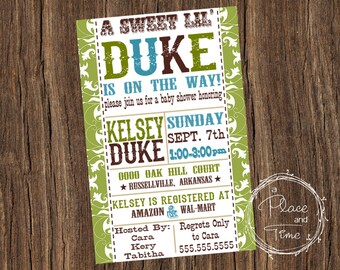 A SWEET LIL'
DUKE
IS ON THE WAY!
please join us for a baby shower honoring
KELSEY
DUKE
SUNDAY
SEPT. 7th
1:00-3:00pm
0000 OAK HILL COURT
★ RUSSELLVILLE, ARKANSAS ★
KELSEY IS REGISTERED AT
AMAZON & WAL-MART
Hosted By:
Cara
Kory
Tabitha
Regrets Only
to Cara
555.555.5555
a
Place
and
Time